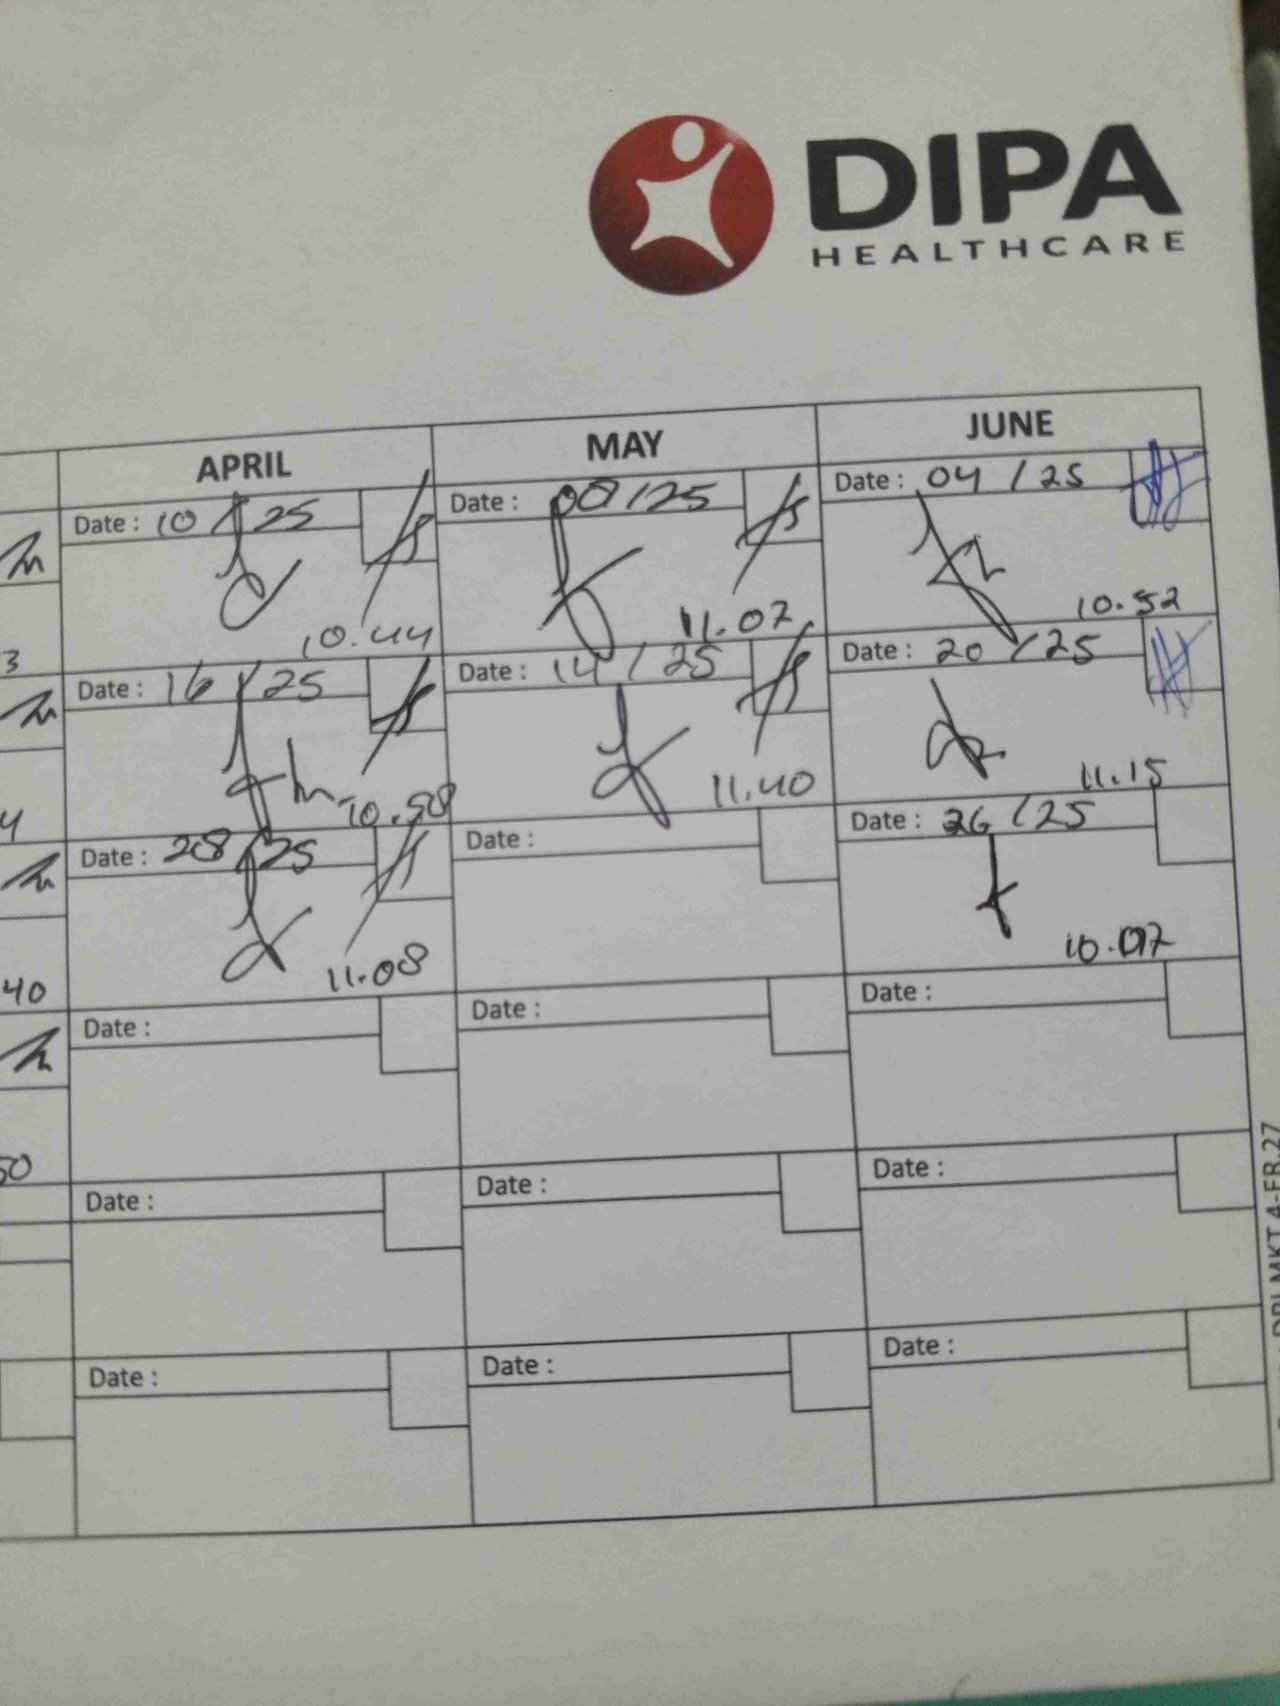 DIPA
HEALTHCARE
APRIL MAY JUNE
Date : 10 / 25 Date : 08/25 Date : 04 / 25
10.44 11.07 10.52
3
Date : 16 / 25 Date : 14 / 25 Date : 20 / 25
10.58 11.40 11.15
4
Date : 28 / 25 Date : Date : 26 / 25
11.08
40
Date : Date : Date :
50
Date : Date : Date :
Date : Date : Date :